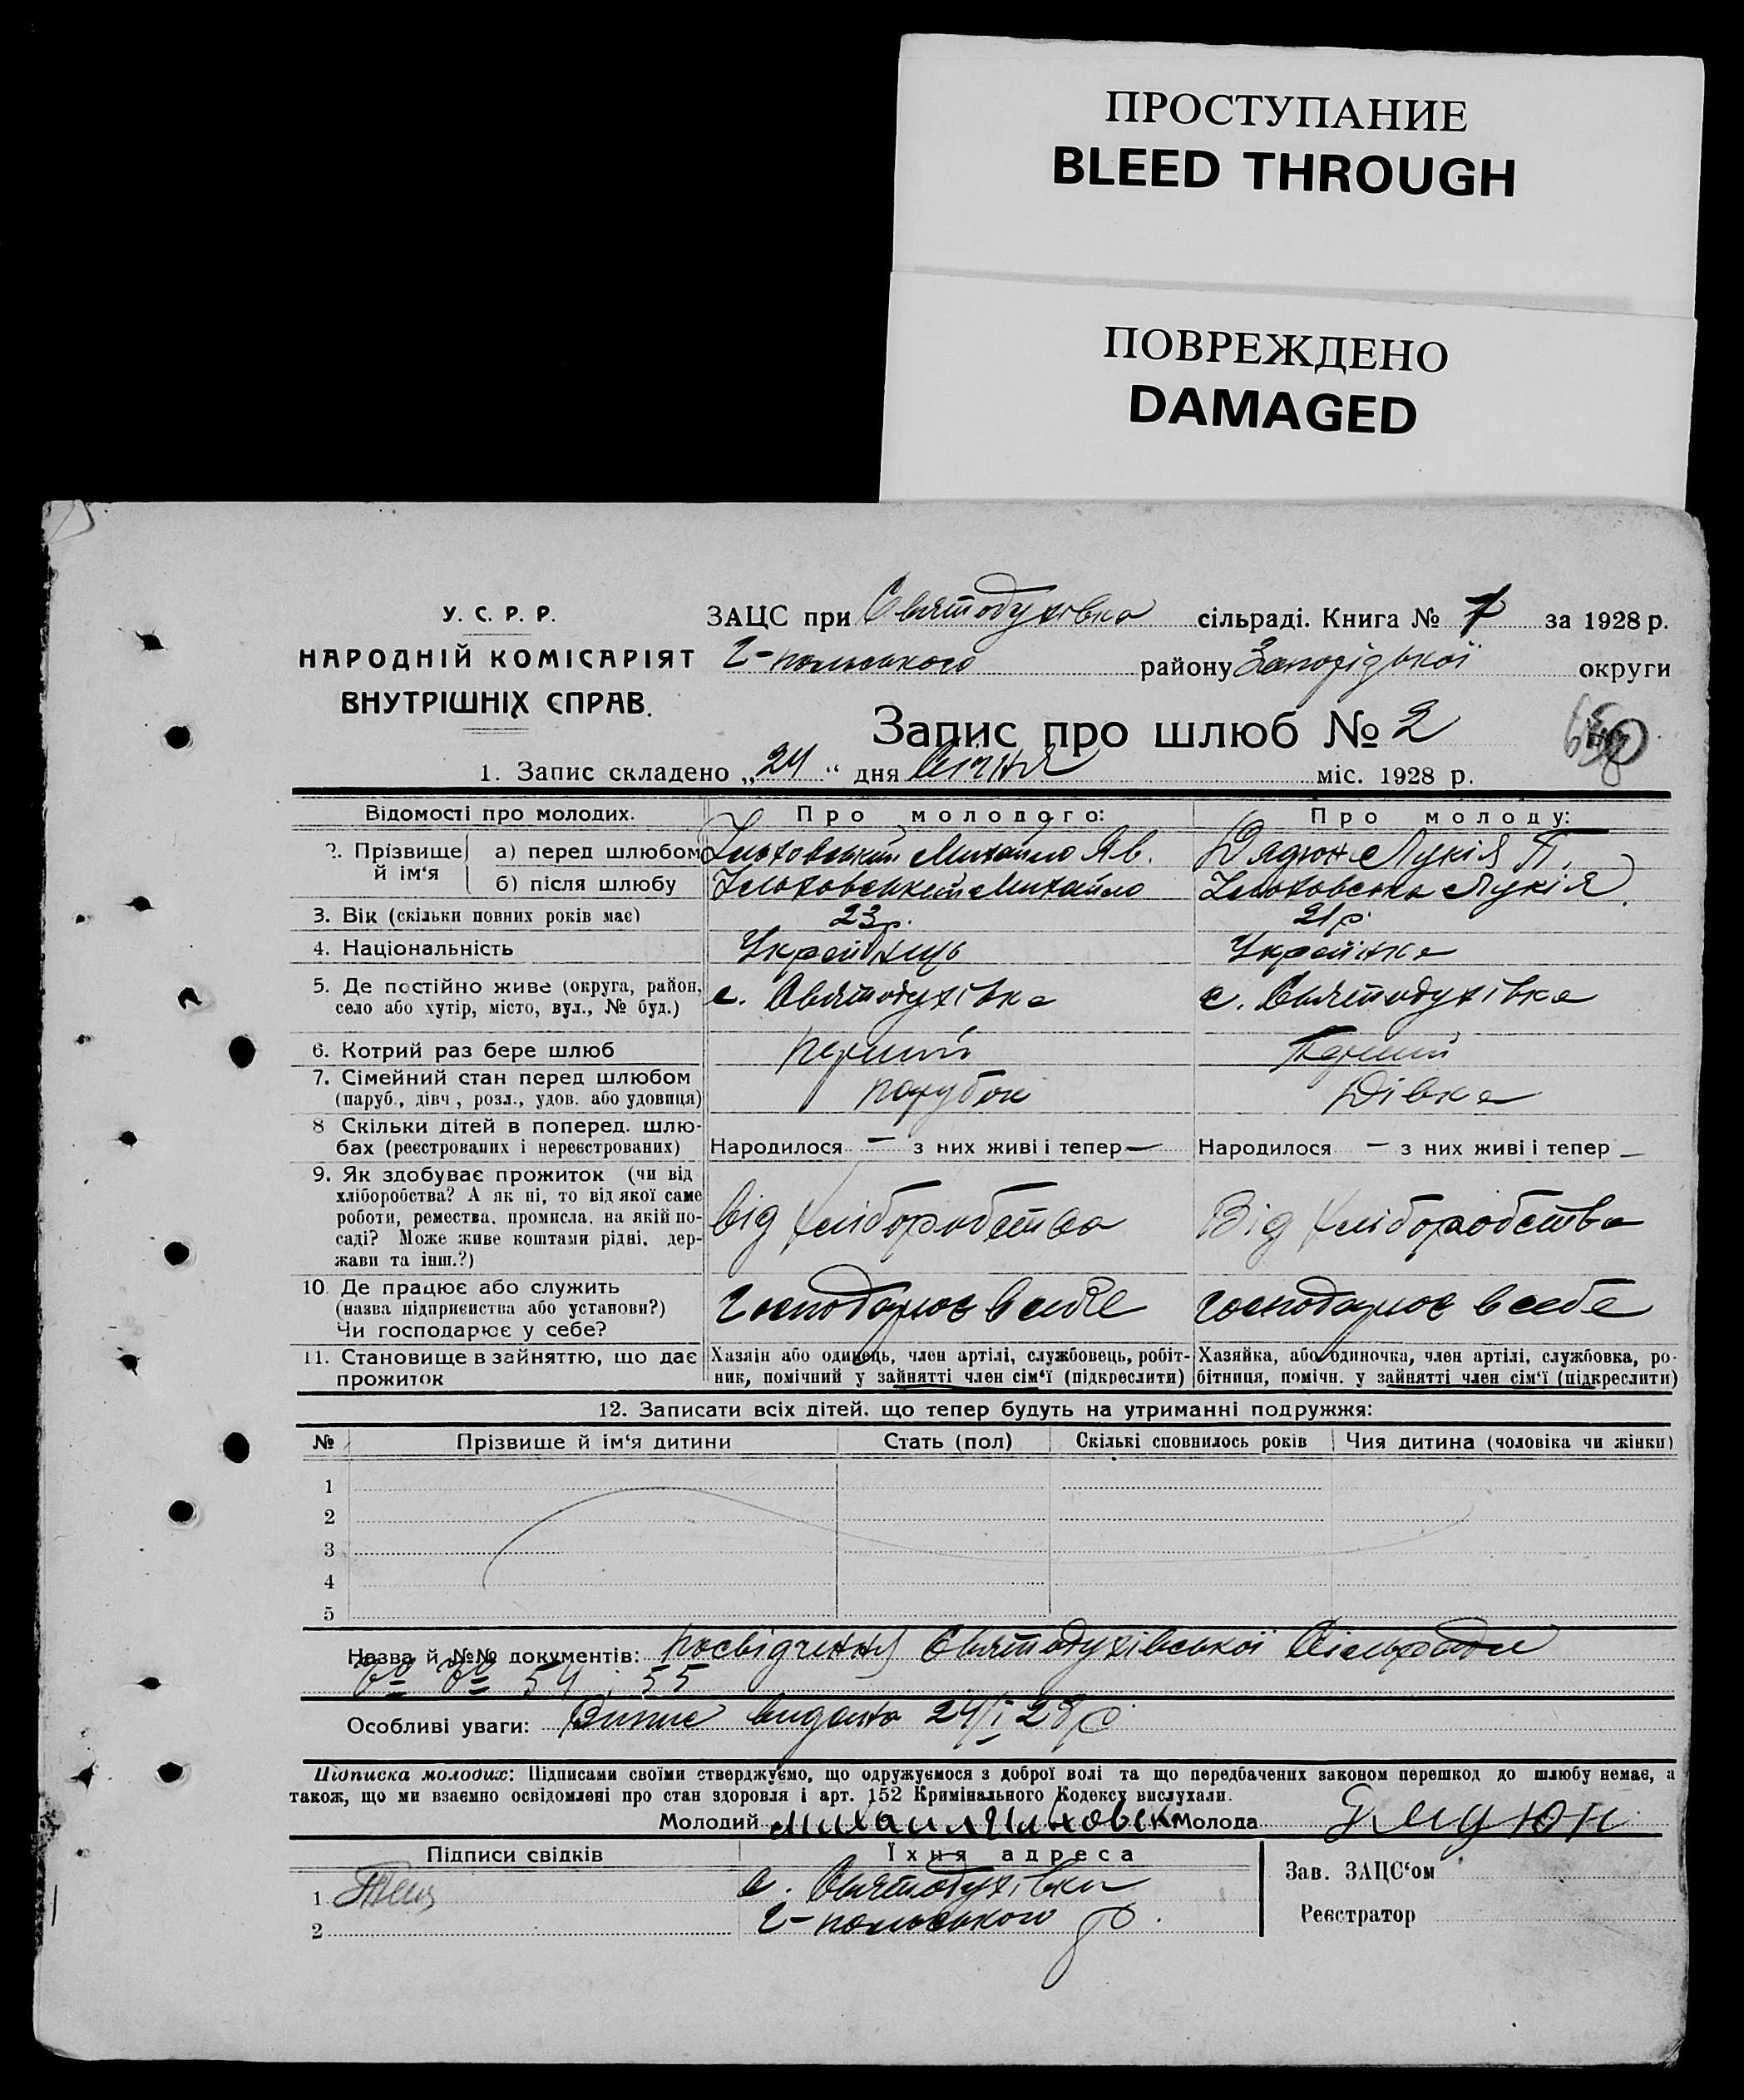 ПРОСТУПАНИЕ
BLEED THROUGH
ПОВРЕЖДЕНО
DAMAGED
У. С. Р. Р.
НАРОДНІЙ КОМІСАРІЯТ
ВНУТРІШНІХ СПРАВ.
ЗАЦС при Святодухівка сільраді. Книга № за 1928 р.
Г-польського району Запорізької округи
Запис про шлюб № 2
1. Запис складено „24“ дня Січня міс. 1928 р.
Відомості про молодих. Про молодого: Про молоду:
2. Прізвище й ім‘я а) перед шлюбом Михайло Яв. Дядюн Лукія П.
б) після шлюбу Михайло Лукія
3. Вік (скільки повних років має) 23 р. 21 р.
4. Національність Українець Українка
5. Де постійно живе (округа, район, село або хутір, місто, вул., № буд.) с. Святодухівка с. Святодухівка
6. Котрий раз бере шлюб перший Перший
7. Сімейний стан перед шлюбом (паруб., дівч., розл., удов. або удовиця) парубок Дівка
8 Скільки дітей в поперед. шлюбах (реєстрованих і нереєстрованих) Народилося — з них живі і тепер — Народилося — з них живі і тепер —
9. Як здобуває прожиток (чи від хліборобства? А як ні, то від якої саме роботи, ремества, промисла, на якій посаді? Може живе коштами рідні, держави та інш.?) від хліборобства Від хліборобства
10. Де працює або служить (назва підприємства або установи?) Чи господарює у себе? господарює в себе господарює в себе
11. Становище в зайняттю, що дає прожиток Хазяїн або одинець, член артілі, службовець, робітник, помічний у зайнятті член сім‘ї (підкреслити) Хазяйка, або одиночка, член артілі, службовка, робітниця, помічн. у зайнятті член сім‘ї (підкреслити)
12. Записати всіх дітей, що тепер будуть на утриманні подружжя:
№ Прізвище й ім‘я дитини Стать (пол) Скількі сповнилось років Чия дитина (чоловіка чи жінки)
1
2
3
4
5
Назва й №№ документів: посвідчення Святодухівської Сільради
№ № 54, 55
Особливі уваги: Випис видано 24/I 28 р.
Підписка молодих: Підписами своїми стверджуємо, що одружуємося з доброї волі та що передбачених законом перешкод до шлюбу немає, а
також, що ми взаємно освідомлені про стан здоровля і арт. 152 Кримінального Кодексу вислухали.
Молодий Молода Дядюн
Підписи свідків Їхня адреса Зав. ЗАЦС‘ом
1 с. Святодухівки
2 Г-польського р. Реєстратор